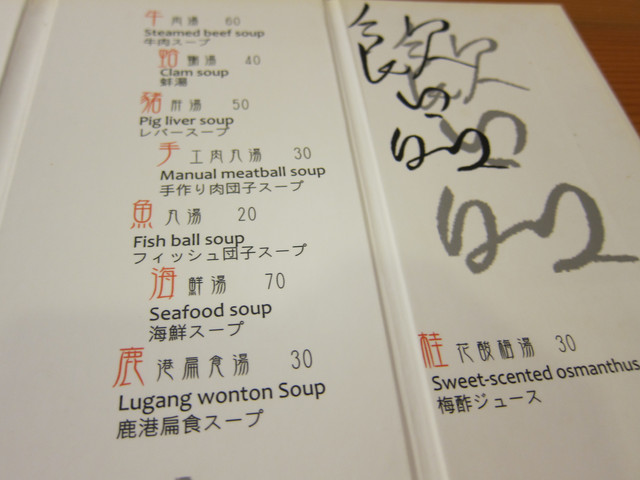 牛肉湯 60
Steamed beef soup
牛肉スープ
蛤蠣湯 40
Clam soup
蚌湯
豬肝湯 50
Pig liver soup
レバースープ
手工肉丸湯 30
Manual meatball soup
手作り肉団子スープ
魚丸湯 20
Fish ball soup
フィッシュ団子スープ
海鮮湯 70
Seafood soup
海鮮スープ
鹿港扁食湯 30
Lugang wonton Soup
鹿港扁食スープ
桂花酸梅湯 30
Sweet-scented osmanthus
梅酢ジュース